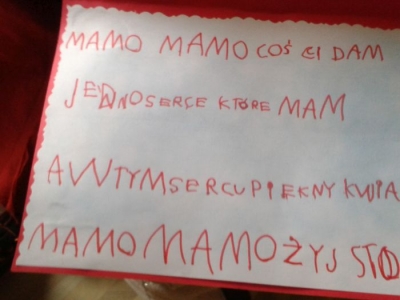 MAMO MAMO COŚ CI DAM
JEDNO SERCE KTÓRE MAM
A W TYM SERCU PIĘKNY KWIA
MAMO MAMO ŻYJ STO